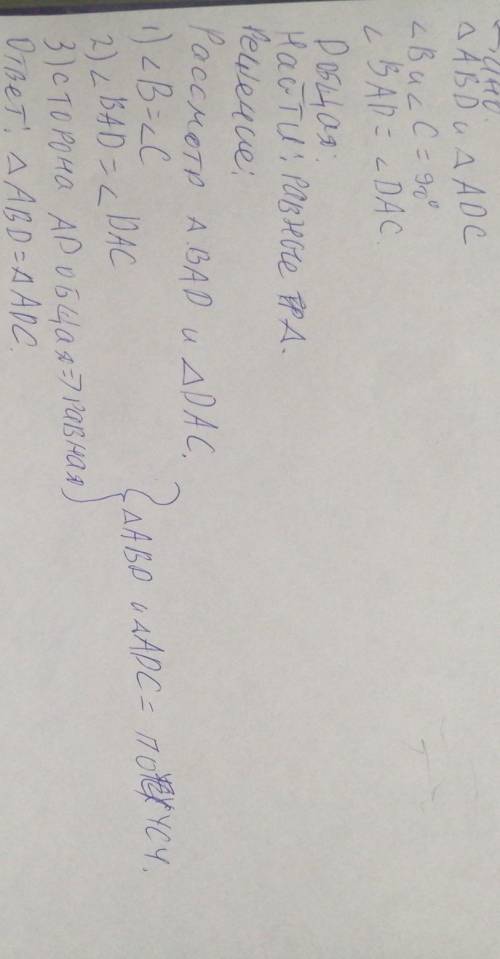 Дано:
△ABD и △ADC
∠B и ∠C = 90°
∠BAD = ∠DAC.
D общая.
Найти: равные △.
Решение:
Рассмотр △BAD и △DAC.
1) ∠B = ∠C
2) ∠BAD = ∠DAC
3) сторона AD общая => равная
} △ABD и △ADC = по УСУ.
Ответ: △ABD = △ADC.